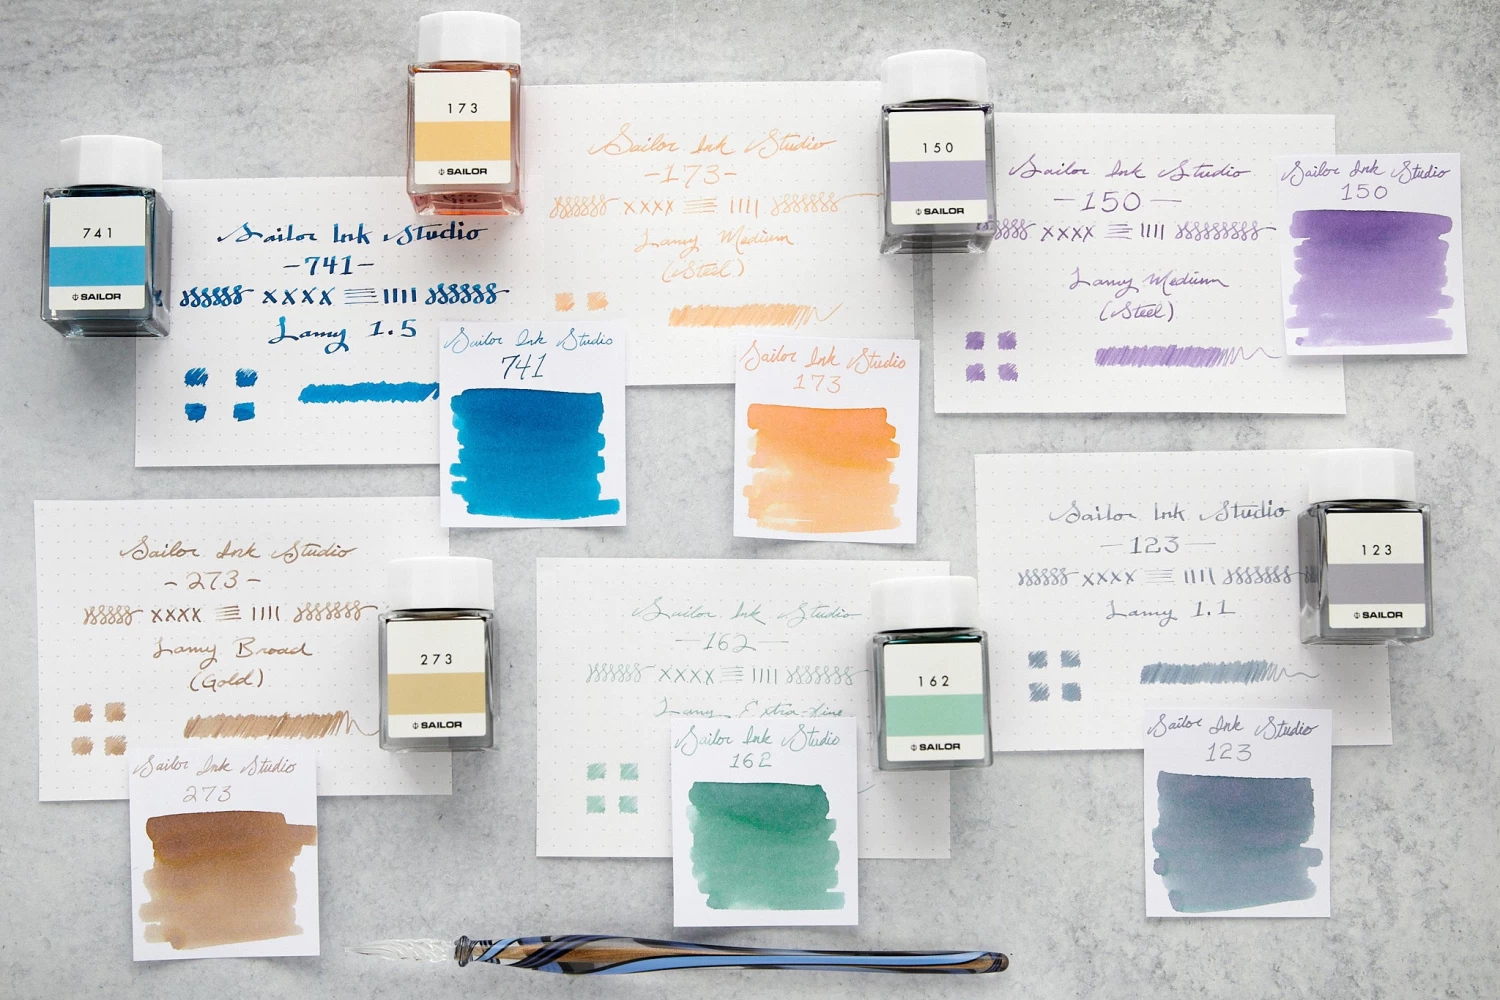 741
SAILOR
Sailor Ink Studio
-741-
xxxx
Lamy 1.5
Sailor Ink Studio
741
173
SAILOR
Sailor Ink Studio
-173-
xxxx
Lamy Medium
(Steel)
Sailor Ink Studio
173
150
SAILOR
Sailor Ink Studio
-150-
xxxx
Lamy Medium
(Steel)
Sailor Ink Studio
150
Sailor Ink Studio
-273-
xxxx
Lamy Broad
(Gold)
273
SAILOR
Sailor Ink Studio
273
Sailor Ink Studio
-162-
xxxx
Lamy Extra-Fine
162
SAILOR
Sailor Ink Studio
162
Sailor Ink Studio
-123-
xxxx
Lamy 1.1
123
SAILOR
Sailor Ink Studio
123